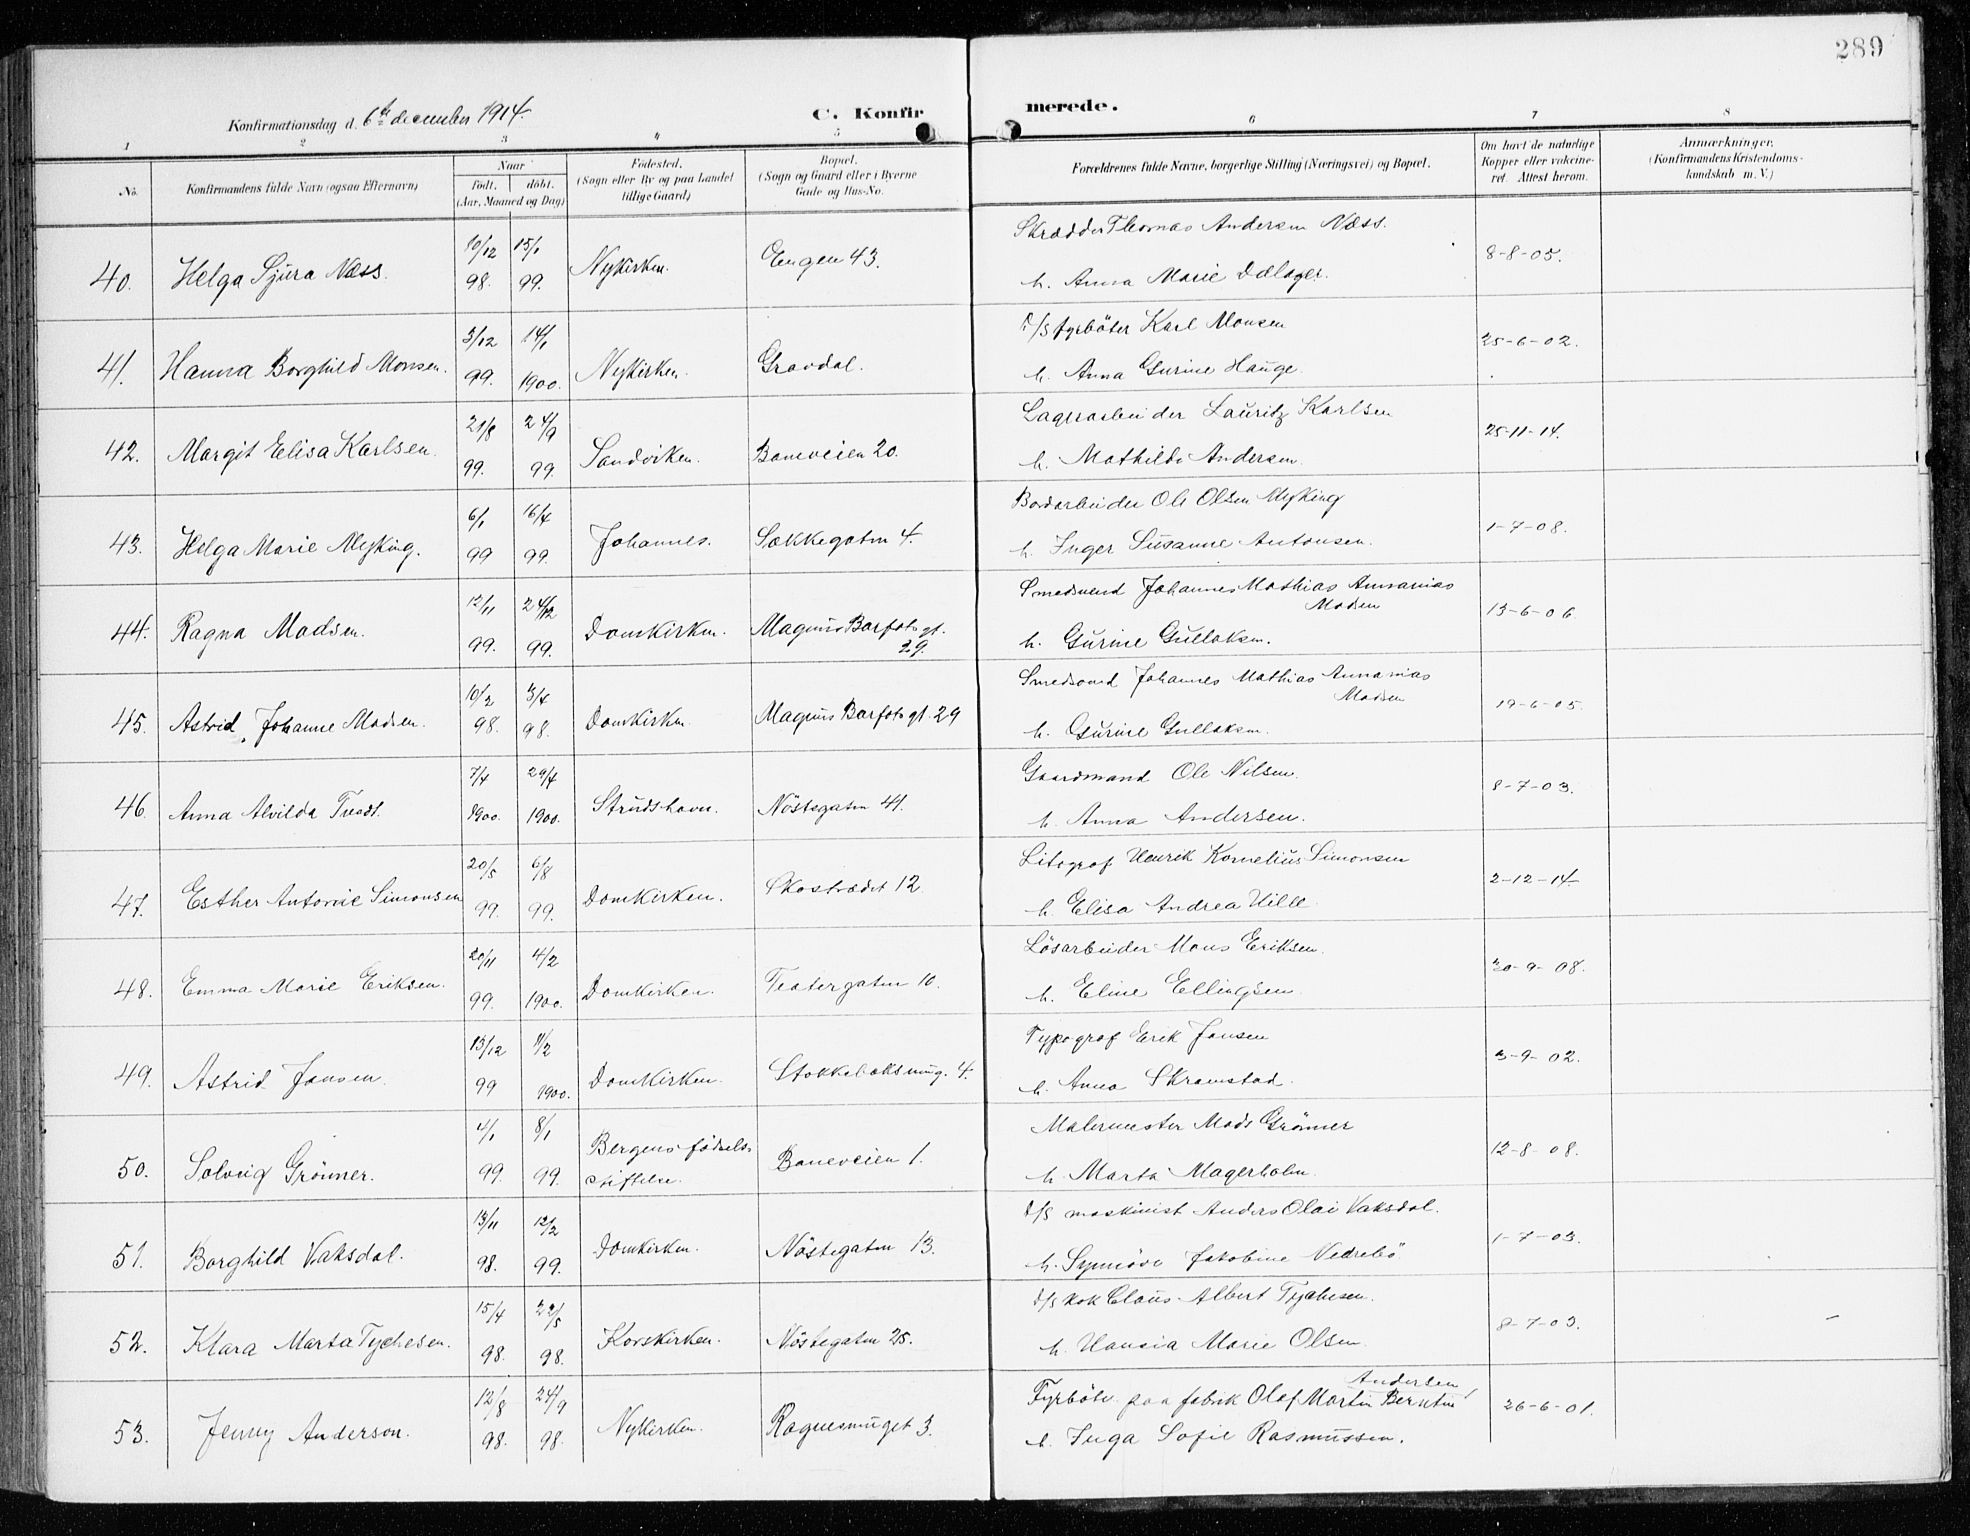 289
Konfirmationsdag d. 6te december 1914.
C. Konfirmerede.
1 2 3 4 5 6 7 8
No.
Konfirmandens fulde Navn (ogsaa Efternavn)
Naar
født. døbt.
(Aar, Maaned og Dag)
Fødested.
(Sogn eller By og paa Landet
tillige Gaard)
Bopæl.
(Sogn og Gaard eller i Byerne
Gade og Hus-No.
Forældrenes fulde Navne, borgerlige Stilling (Næringsvei) og Bopæl.
Om havt de naturlige
Kopper eller vakcine-
ret. Attest herom.
Anmærkninger.
(Konfirmandens Kristendoms-
kundskab m. V.)
40. Helga Sjura Næss. 10/12 98. 15/1 99. Nykirken. Engen 43. Skrædder Thomas Andersen Næss.
h. Anna Marie Dalager. 8-8-05.
41. Hanna Borghild Monsen. 3/12 99. 14/1 1900. Nykirken. Gravdal. d/s fyrböter Karl Monsen
h. Anna Gurine Hauge. 25-6-02.
42. Margit Elisa Karlsen. 21/8 99. 24/9 99. Sandviken. Baneveien 20. Lagerarbeider Lauritz Karlsen
h. Mathilde Andersen. 25-11-14.
43. Helga Marie Myking. 6/1 99 16/4 99. Johannes. Sækkegaten 4. Bordarbeider Ole Olsen Myking
h. Inger Susanne Antonsen. 1-7-08.
44. Ragna Madsen. 12/11 99. 24/12 99. Domkirken. Magnus Barfots gt.
29. Smedsvend Johannes Mathias Annanias
Madsen
h. Gurine Gullaksen. 13-6-06
45. Astrid Johanne Madsen. 10/2 98. 3/4 98. Domkirken. Magnus Barfots gt. 29 Smedsvend Johannes Mathias Annanias
Madsen
h. Gurine Gullaksen. 19-6-05.
46. Anna Alvilda Tvedt. 7/4 1900. 29/4 1900. Strudshavn. Nöstegaten 41. Gaardmand Ole Nilsen.
h. Anna Andersen. 8-7-03.
47. Esther Antonie Simonsen 20/5 99. 6/8 99. Domkirken. Skostrædet 12. Litograf Henrik Kornelius Simonsen
h. Elisa Andrea Hille. 2-12-14
48. Emma Marie Eriksen. 20/11 99. 4/2 1900. Domkirken. Teatergaten 10. Lösarbeider Mons Eriksen.
h. Eline Ellingsen. 30-9-08.
49. Astrid Jansen. 13/12 99 11/2 1900. Domkirken. Stokkebaksmug. 4. Typograf Erik Jansen
h. Anna Skramstad. 3-9-02.
50. Solveig Grönner. 4/1 99. 8/1 99. Bergens födsels-
stiftelse. Baneveien 1. Malermester Mads Grönner
h. Marta Magerholm. 12-8-08.
51. Borghild Vaksdal. 13/11 98. 12/2 99. Domkirken. Nöstegaten 13. d/s maskinist Anders Olai Vaksdal.
h. Synnöve Jakobine Vedrebö 1-7-03.
52. Klara Marta Tychesen. 15/4 98. 22/5 98. Korskirken. Nöstegaten 25. d/s kok Claus Albert Tychesen.
h. Hansia Marie Olsen. 8-7-03. –
53. Jenny Anderson. 12/8 98. 24/9 98. Nykirken. Ragnesmuget 3. Andersen
Fyrböter paa fabrik Olaf Martin Berntin
h. Inga Sofie Rasmussen. 26-6-01.